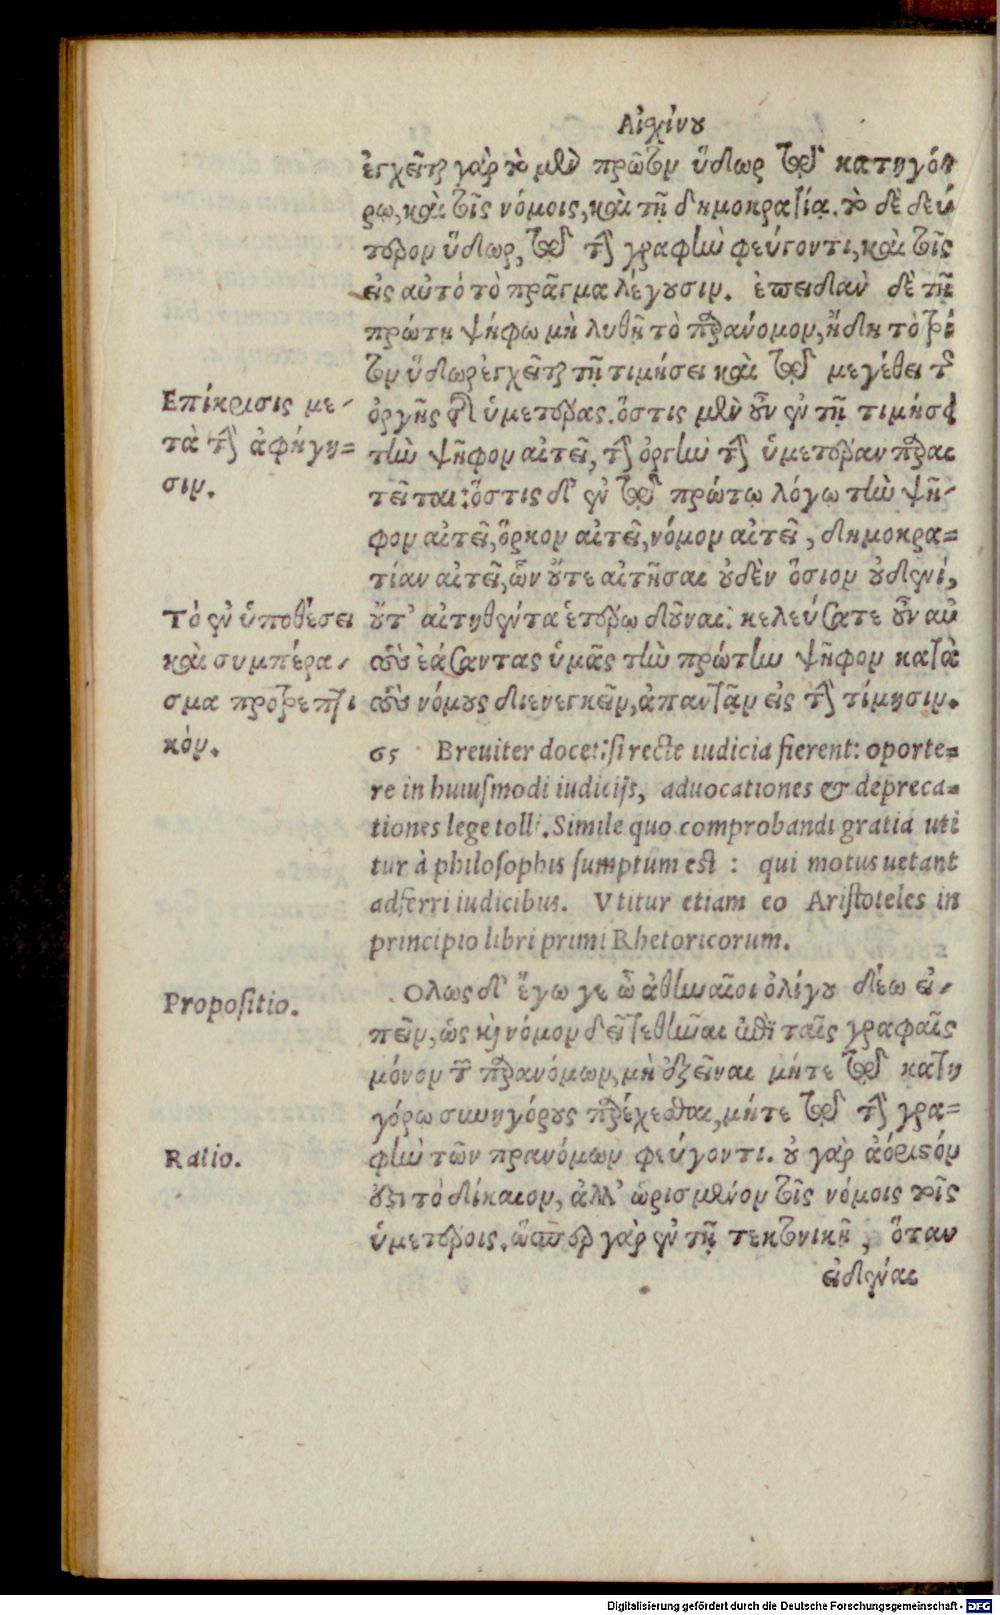 Αἰσχίνου
ἐγχεῖται γὰρ τὸ μὲν πρῶτον ὕδωρ τῷ κατηγό-
ρῳ, καὶ τοῖς νόμοις, καὶ τῇ δημοκρατίᾳ. τὸ δὲ δεύ
τερον ὕδωρ, τῷ τὴν γραφὴν φεύγοντι, καὶ τοῖς
εἰς αὐτὸ τὸ πρᾶγμα λέγουσιν. ἐπειδὰν δὲ τῇ
πρώτῃ ψήφῳ μὴ λυθῇ τὸ παράνομον, ἤδη τὸ τρί
τον ὕδωρ ἐγχεῖται τῇ τιμήσει καὶ τῷ μεγέθει τῆς
ὀργῆς τῆς ὑμετέρας. ὅστις μὲν οὖν ἐν τῇ τιμήσει
τὴν ψῆφον αἰτεῖ, τὴν ὀργὴν τὴν ὑμετέραν παραι
τεῖται: ὅστις δ' ἐν τῷ πρώτῳ λόγῳ τὴν ψῆ-
φον αἰτεῖ, ὅρκον αἰτεῖ, νόμον αἰτεῖ, δημοκρα=
τίαν αἰτεῖ, ὧν οὔτε αἰτῆσαι οὐδὲν ὅσιον οὐδενί,
οὔτ' αἰτηθέντα ἑτέρῳ δοῦναι. κελεύσατε οὖν αὐ
τοὺς ἐάσαντας ὑμᾶς τὴν πρώτην ψῆφον κατὰ
τοὺς νόμους διενεγκεῖν, ἀπαντᾶν εἰς τὴν τίμησιν.
Επίκρισις με-
τὰ τὴν ἀφήγη=
σιν.
Τὸ ἐν ὑποθέσει
καὶ συμπέρα-
σμα προτρεπτι
κόν.
65 Breuiter docet: si recte iudicia fierent: oporte=
re in huiusmodi iudicijs, aduocationes & depreca=
tiones lege tolli. Simile quo comprobandi gratia uti
tur à philosophis sumptum est : qui motus uetant
adferri iudicibus. Vtitur etiam eo Aristoteles in
principio libri primi Rhetoricorum.
Propositio.
Ολως δ' ἔγωγε ὦ ἀθηναῖοι ὀλίγου δέω εἰ-
πεῖν, ὡς καὶ νόμον δεῖ τεθῆναι ἐπὶ ταῖς γραφαῖς
μόνον τῶν παρανόμων, μὴ ἐξεῖναι μήτε τῷ κατη
γόρῳ συνηγόρους παρέχεσθαι, μήτε τῷ τὴν γρα=
φὴν τῶν παρανόμων φεύγοντι. οὐ γὰρ ἀόριστόν
ἐστι τὸ δίκαιον, ἀλλ' ὡρισμένον τοῖς νόμοις τοῖς
ὑμετέροις. ὥσπερ γὰρ ἐν τῇ τεκτονικῇ, ὅταν
Ratio.
εἰδέναι
Digitalisierung gefördert durch die Deutsche Forschungsgemeinschaft - DFG